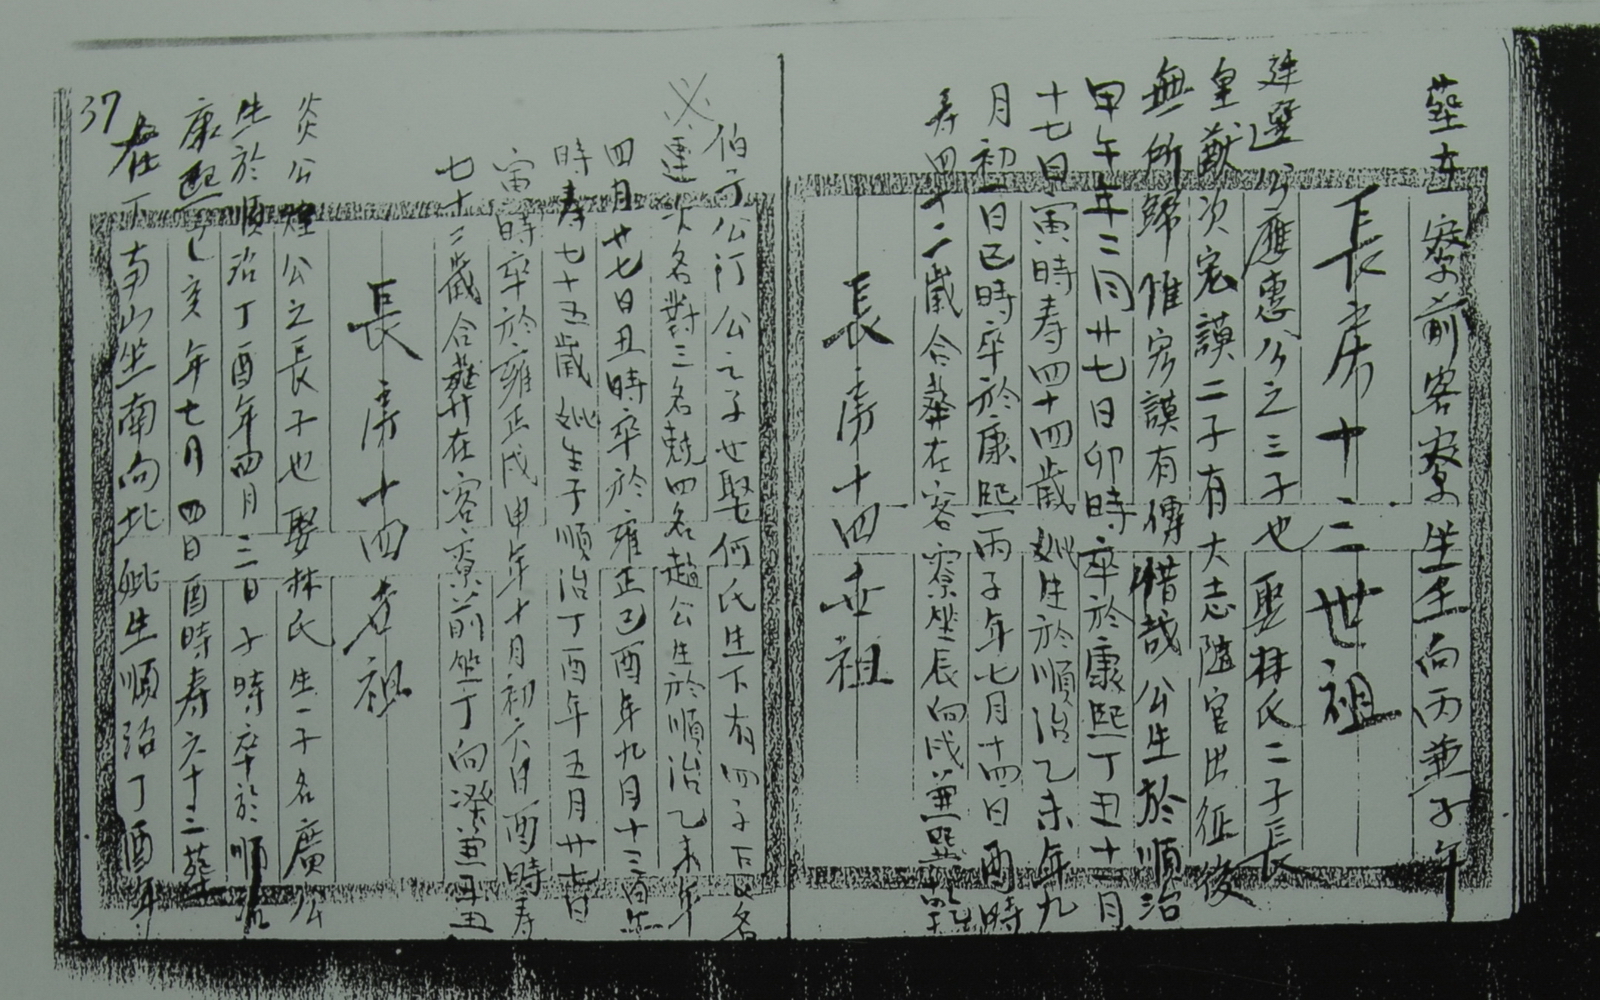 葬在寮前客寮坐壬向丙兼子午
長房十三世祖
廷選公應惠公之三子也娶林氏二子長
皇猷次宏謨二子有大志隨官出征後
無所歸惟宏謨有傳惜哉公生於順治
甲午年二月廿七日卯時卒於康熙丁丑十一月
十七日寅時寿四十四歲妣生於順治乙未年九
月初一日巳時卒於康熙丙子年七月十四日酉時
寿四十二歲合葬在客寮坐辰向戌兼巽
長房十四世祖
伯 公汀公之子也娶何氏生下有四子長名
連次名對三名兢四名趙公生於順治乙未年
四月廿七日丑時卒於雍正己酉年九月十三日
時寿七十五歲妣生于順治丁酉年五月廿七日
寅時卒於雍正戊申年十月初六日酉時寿
七十二歲合葬在客寮前坐丁向癸兼
長房十四世祖
炎公煌公之長子也娶林氏生一子名廣公
生於順治丁酉年四月三日子時卒於順治
康熙己亥年七月四日酉時寿六十三葬
在下南山坐南向北妣生順治丁酉年
37